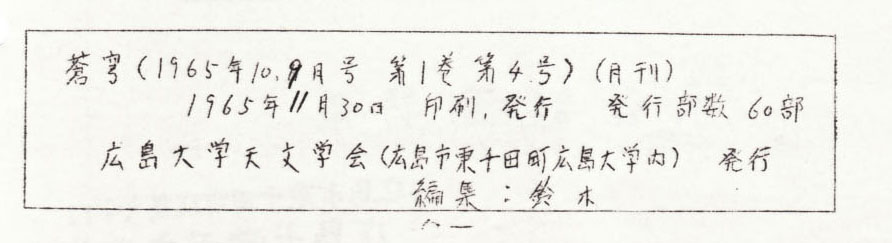 蒼穹(1965年10,9月号 第1巻 第4号)(月刊)
1965年11月30日 印刷,発行 発行部数 60部
広島大学天文学会(広島市東千田町広島大学内) 発行
編集:鈴木